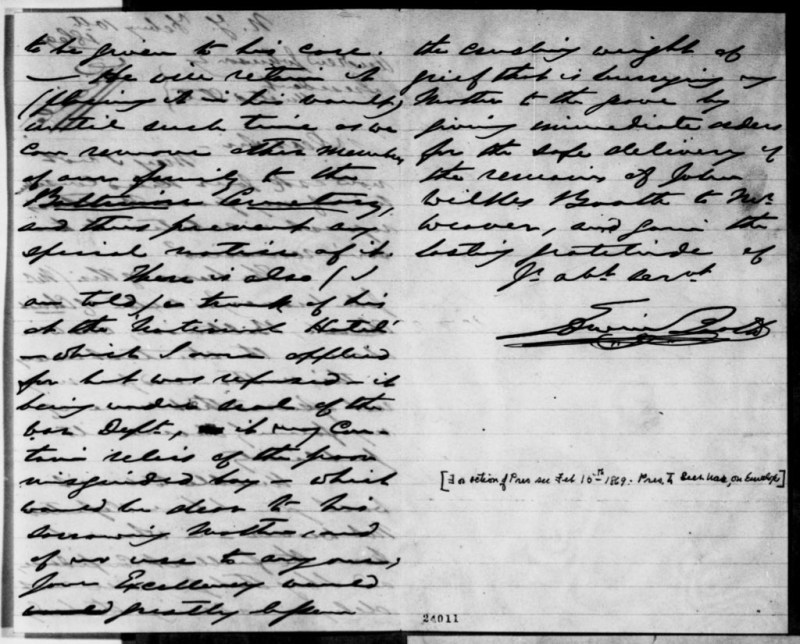 to be given to his care.
— He will retain it
(placing it in his vault)
until such time as we
can remove other members
of our family to the
Baltimore Cemetery,
and thus prevent any
special notice of it.
There is also (I
am told) a trunk of his
at the National Hotel
— which I once applied
for but was refused — it
being under seal of the
War Dept., it may con-
tain relics of the poor
misguided boy — which
would be dear to his
sorrowing mother, and
of no use to anyone.
Your Excellency would
would greatly lessen
the crushing weight of
grief that is hurrying my
Mother to the grave by
giving immediate orders
for the safe delivery of
the remains of John
Wilkes Booth to Mr.
Weaver, and gain the
lasting gratitude of
Yr. obt. servt.
Edwin Booth
[ action of Pres see Feb 15th 1869. Pres. to Secy War, on Envelope]
24011